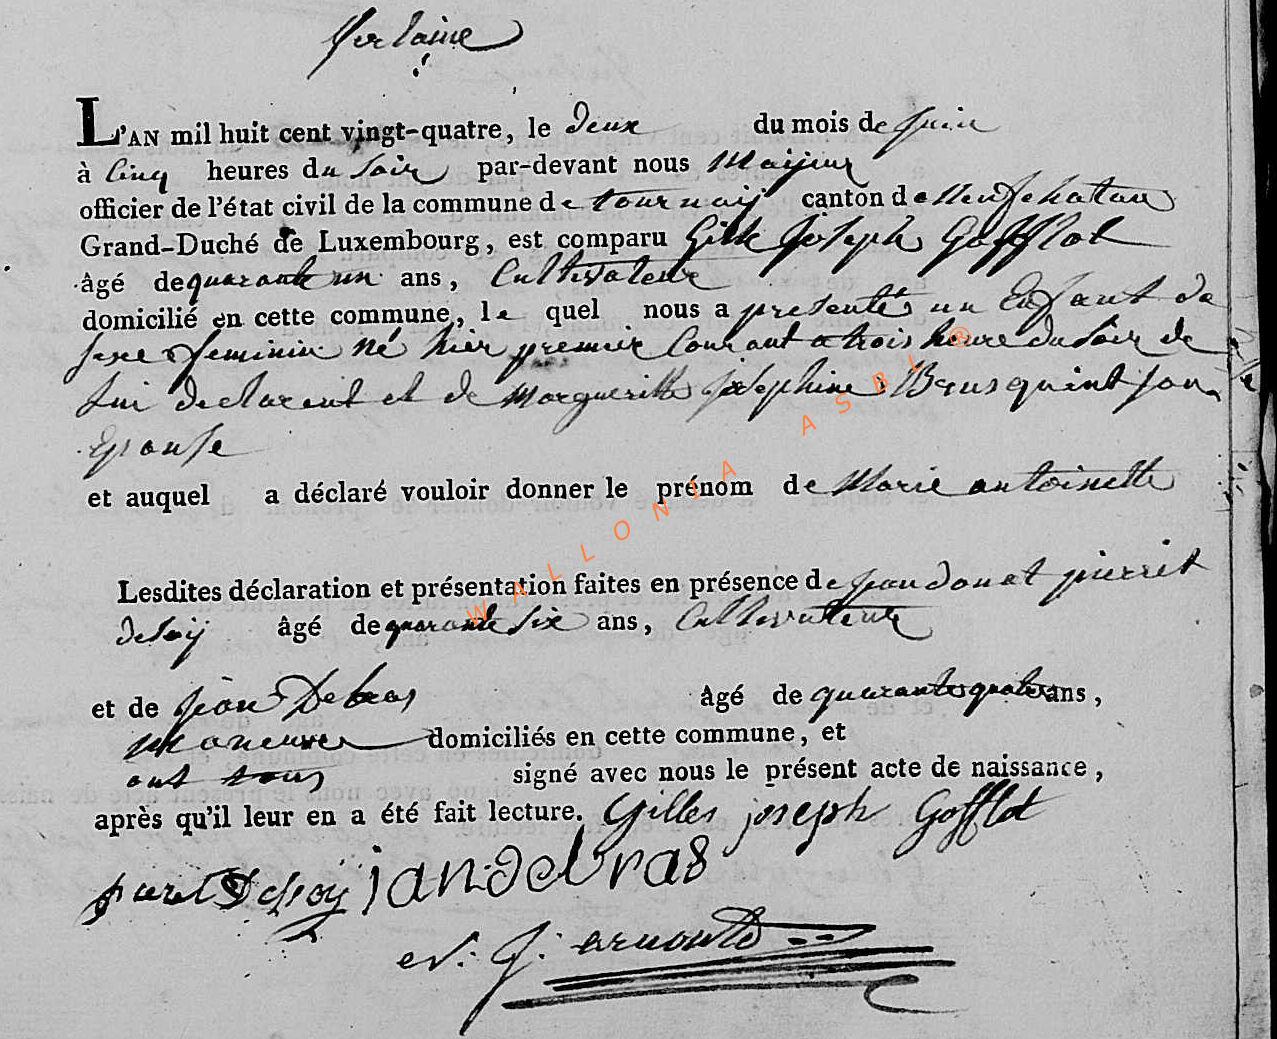 Verlaine
L'AN mil huit cent vingt-quatre, le deux du mois de juin
à Cinq heures du soir par-devant nous Maijeur
officier de l'état civil de la commune de tournaij canton de Neufchatau
Grand-Duché de Luxembourg, est comparu Gille Joseph Gofflot
âgé de quarante un ans, Cultivateur
domicilié en cette commune, le quel nous a presenté un Enfant de
sexe feminin né hier premier Courant a trois heure du soir de
lui declarent et de Margueritte josephine Brusquint son
Epouse
et auquel a déclaré vouloir donner le prénom de Marie antoinette
Lesdites déclaration et présentation faites en présence de jean donat pierret
desoij âgé de quarante six ans, Cultivateur
et de jean Debras âgé de quarante quatre ans,
manœuvre domiciliés en cette commune, et
ont tous signé avec nous le présent acte de naissance,
après qu'il leur en a été fait lecture. Gilles joseph Gofflot
jan debras
J: arnould
WALLONIA ASBL ®